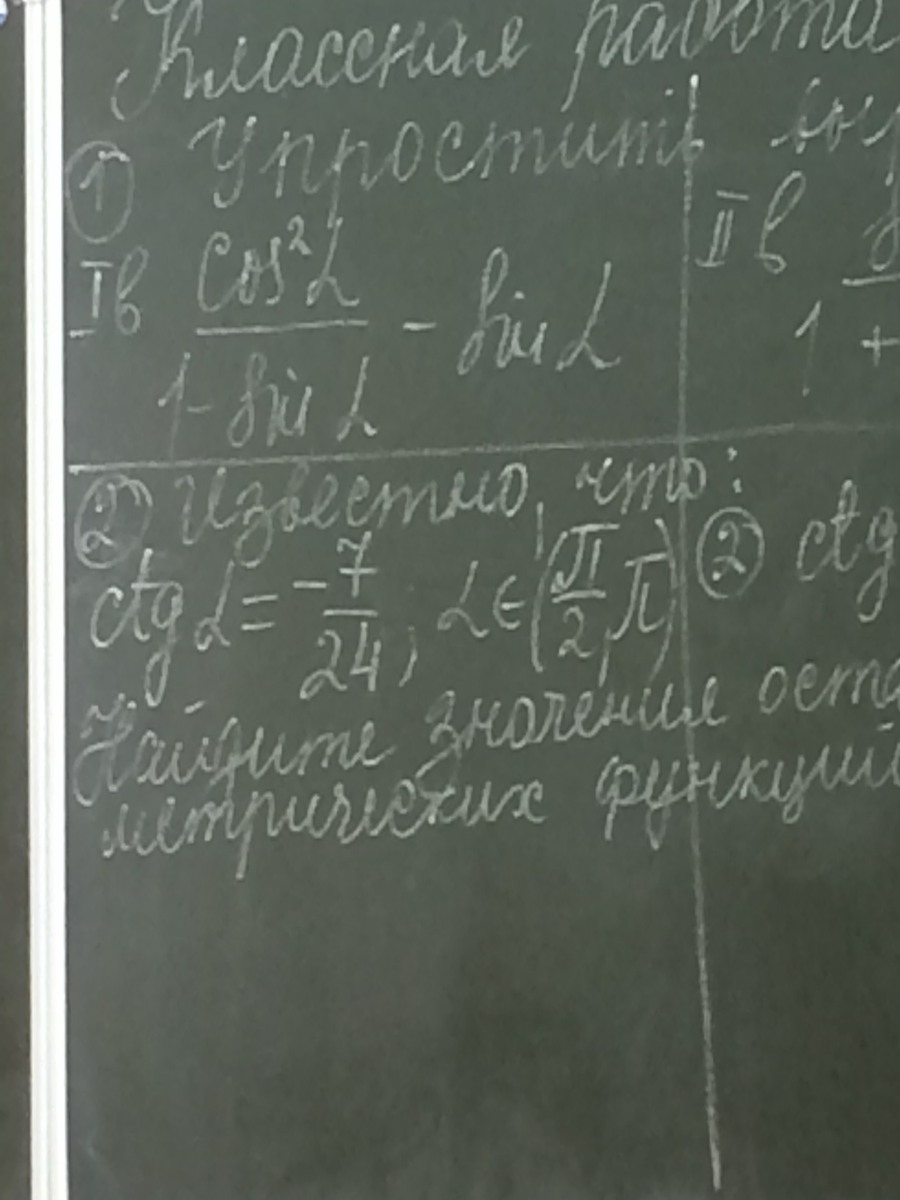 Классная работа
① Упростить выр
Iв cos²α / 1 - sin α - sin α
IIв
1 +
② Известно, что:
ctg α = -7/24, α ∈ (π/2, π)
② ctg
Найдите значения оста
метрических функций